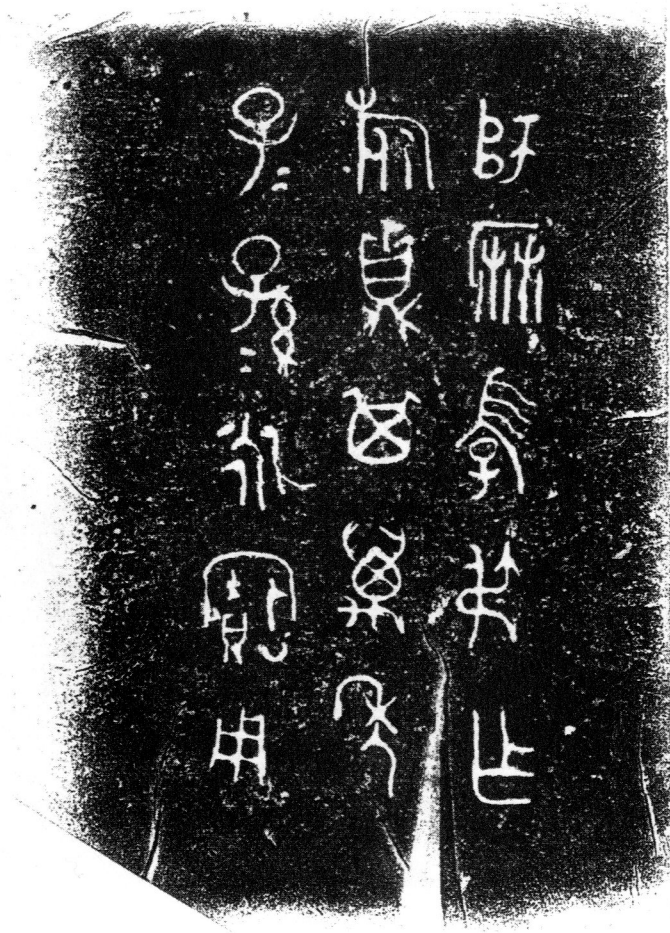 師麻孝叔乍
旅鼎其萬年
子=孫=永寶用